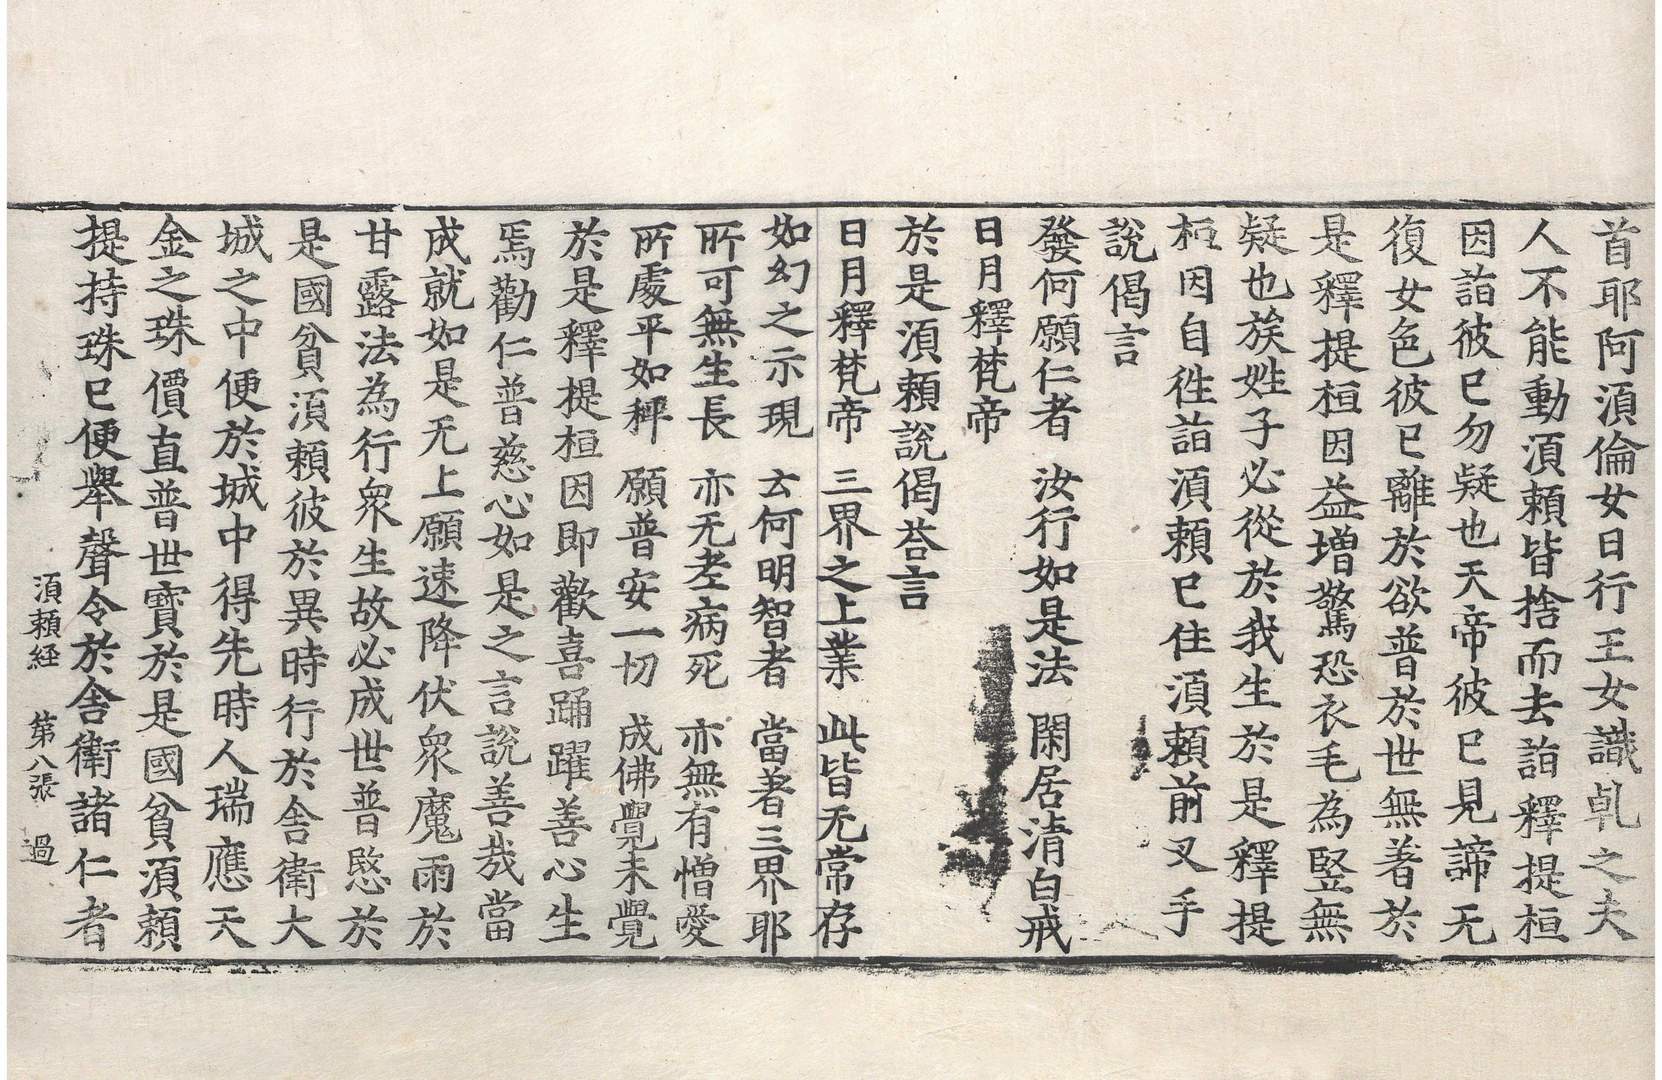 首耶阿湏倫女日行王女識乹之夫
人不能動湏頼皆捨而去詣釋提桓
因詣彼巳勿疑也天帝彼巳見諦无
復女色彼巳離於欲普於世無著於
是釋提桓因益增驚恐衣毛為竪無
疑也族姓子必從於我生於是釋提
桓因自徃詣湏頼巳住湏頼前叉手
說偈言
發何願仁者　汝行如是法　閑居清白戒
日月釋梵帝
於是湏頼說偈荅言
日月釋梵帝　三界之上業　此皆无常存
如幻之示現　云何明智者　當著三界耶
所可無生長　亦无老病死　亦無有憎愛
所處平如秤　願普安一切　成佛覺未覺
於是釋提桓因即歡喜踊躍善心生
焉勸仁普慈心如是之言說善哉當
成就如是无上願速降伏衆魔雨於
甘露法為行衆生故必成世普愍於
是國貧湏頼彼於異時行於舎衛大
城之中便於城中得先時人瑞應天
金之珠價直普世寳於是國貧湏頼
提持珠巳便舉聲令於舎衛諸仁者
湏頼経　第八張　過